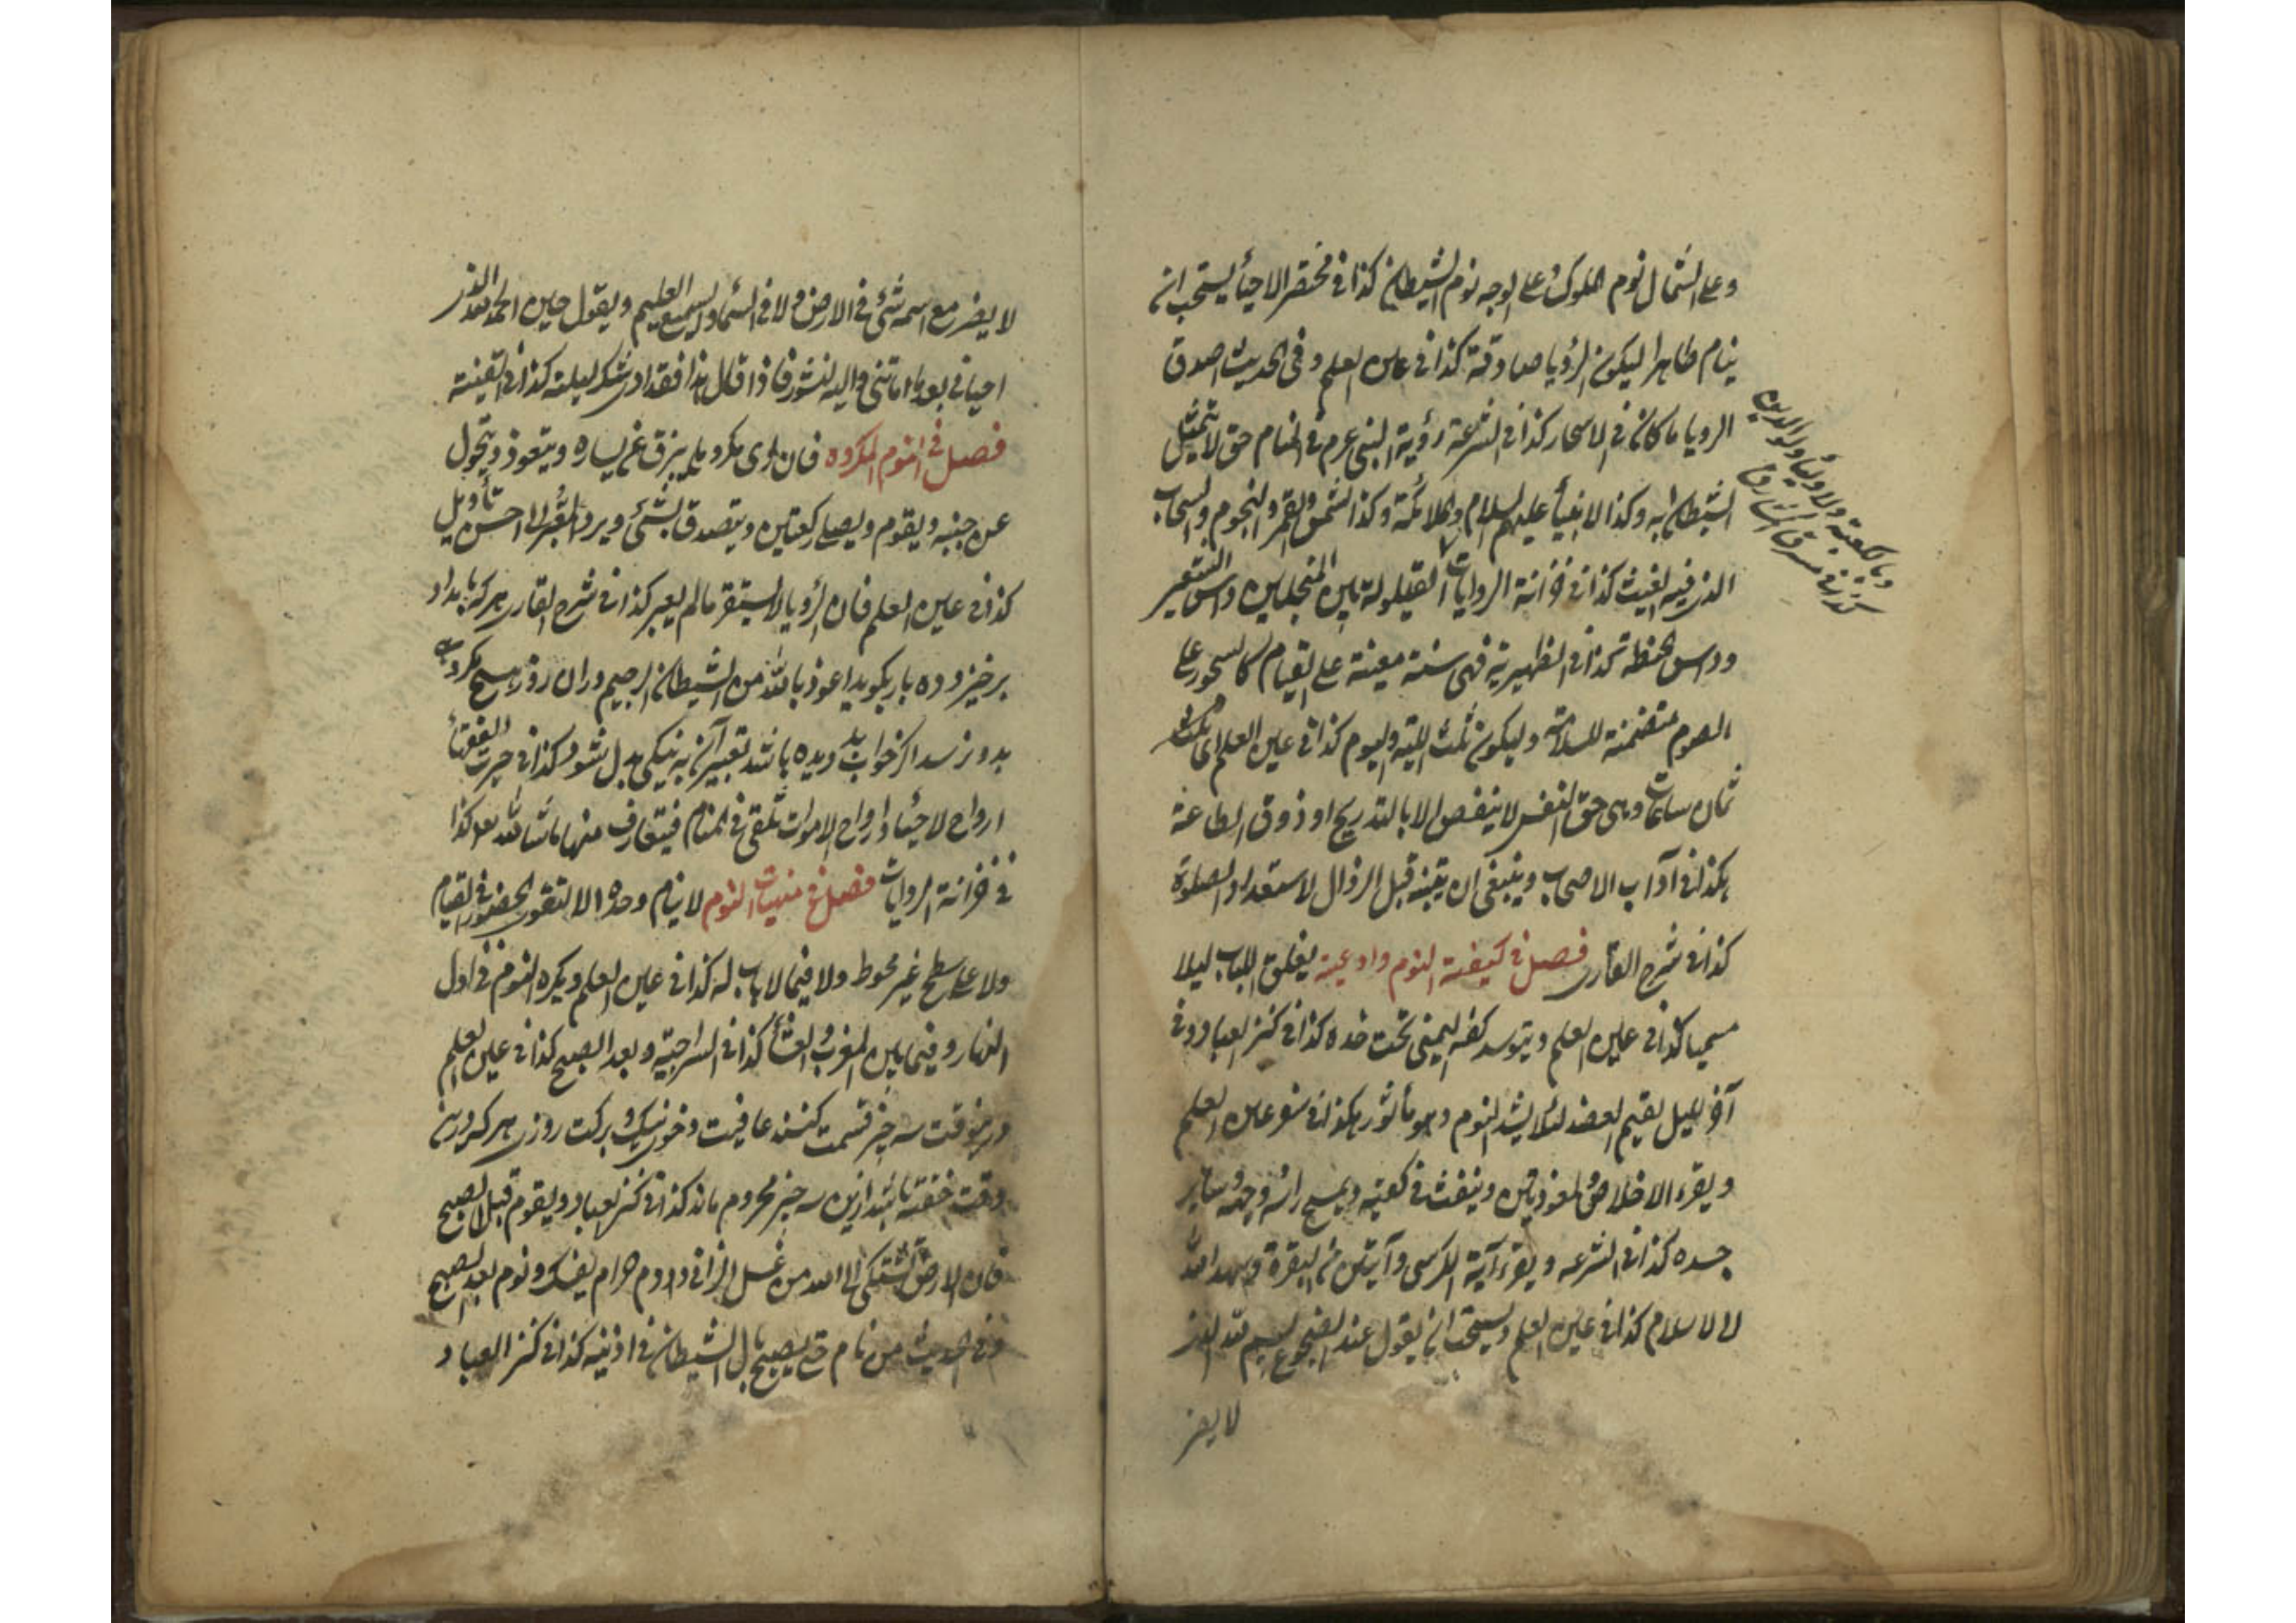 وعلى الشمال نوم الملوك وعلى الوجه نوم الشيطان كذا في مختصر الاحياء يستحب ان
ينام طاهرا ليكون الرؤيا صادقة كذا في عين العلم وفي الحديث اصدق
الرويا ما كان في الاسحار كذا في الشرعة رؤية النبي عم في المنام حق لا يتمثل
الشيطان به وكذا الانبياء عليهم السلام والملائكة وكذا الشمس والقمر والنجوم والسحاب
الذي فيه الغيث كذا في خزانة الروايات القيلولة بين المنجلين داس الشعير
وداس الحنطة كذا في الظهيرية فهي سنة معينة على القيام كالسحور على
الصوم متضمنة للسلامة وليكون ثلث الليلة واليوم كذا في عين العلم اي
ثمان ساعات وهي حق النفس لا ينقص الا بالتدريج او ذوق الطاعة
هكذا في آداب الاصحاب وينبغي ان يتنبه قبل الزوال لاستعداد الصلوة
كذا في شرح القاري فصل في كيفية النوم وادعيته يغلق الباب ليلا
مسميا كذا في عين العلم ويتوسد كفه اليمنى تحت خده كذا في كنز العباد وفي
آخر الليل يقيم العضد لئلا يشتد النوم وهو مأثور هكذا في عين العلم
ويقرء الاخلاص والمعوذتين وينفث في كفيه ويمسح رأسه ووجهه وسائر
جسده كذا في الشرعه ويقرء آية الكرسي وآيتين من البقرة
لا لاسلام كذا في عين العلم ويستحب ان يقول عند المضجع بسم الله الذي
لا يضر
وبالكعبة والاولياء
كذا في
لا يضر مع اسمه شئ في الارض ولا في السماء وهو السميع العليم ويقول حين الحمد لله الذي
احياني بعد ما اماتني واليه النشور فاذا قال هذا فقد ادى شكر ليلته كذا في القنية
فصل في النوم المكروه فان راى مكروها يبزق عن يساره ويتعوذ ويتحول
عن جنبه ويقوم ويصلي ركعتين ويتصدق بشئ ويرد المعبر الى احسن تأويل
كذا في عين العلم فان الرؤيا لا يستقر مالم يعبر كذا في شرح القاري هر كه بامداد
برخيزد وده بار بگويد اعوذ بالله من الشيطان الرجيم دران روز هيچ مكروهي
بدو نرسد اگر خواب بد ديده باشد تعبير آن به نيكي بدل شود كذا في حيرت الفقهاء
ارواح الاحياء وارواح الاموات تلتقي في المنام فيتعارف منها ما شاء الله كذا
في خزانة الروايات فصل في منهيات النوم لا ينام وحده الا لتقوى الحضور في القيام
ولا على سطح غير محوط ولا فيما لا باب له كذا في عين العلم ويكره النوم في اول
النهار وفيما بين المغرب والعشاء كذا في السراجية وبعد الصبح كذا في عين العلم
درينوقت سه چيز قسمت كنند عافيت وخوي نيك وبركت روزي هر كه درين
وقت خفته باشد ازين سه چيز محروم ماند كذا في كنز العباد ويقوم قبل الصبح
فان الارض تشتكي الى الله من غسل الزاني ودم حرام يسفك ونوم بعد الصبح
وفي الحديث من نام حتى يصبح بال الشيطان في اذنيه كذا في كنز العباد